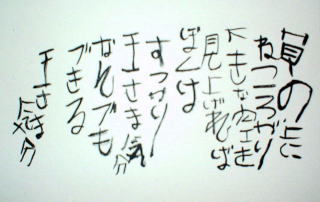 の上に
ねっころがり
大きな空を
見上げれば
ぼくは
すっかり
王さま気分
なんでも
できる
王さま気分